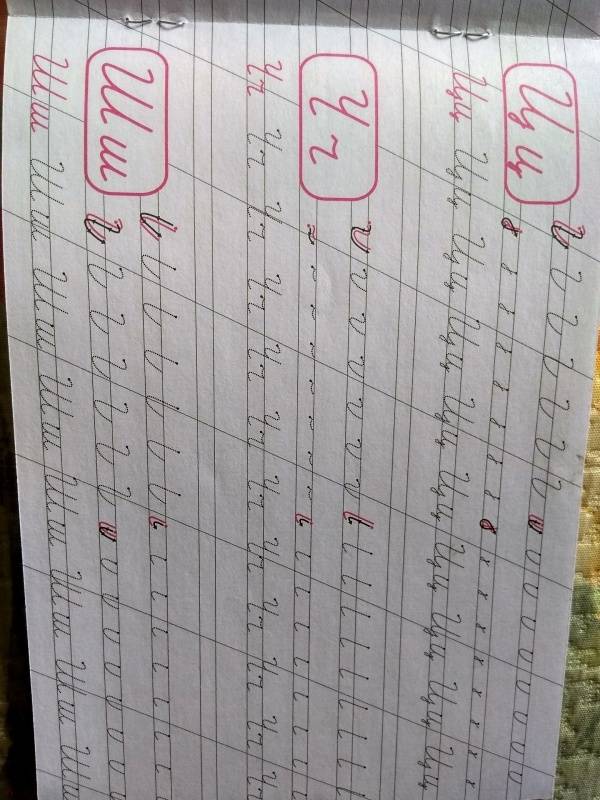 Цц
Цц Цц Цц Цц Цц Цц Цц Цц Цц Цц
Чч
Чч Чч Чч Чч Чч Чч Чч Чч Чч Чч Чч
Шш
Шш Шш Шш Шш Шш Шш Шш Шш